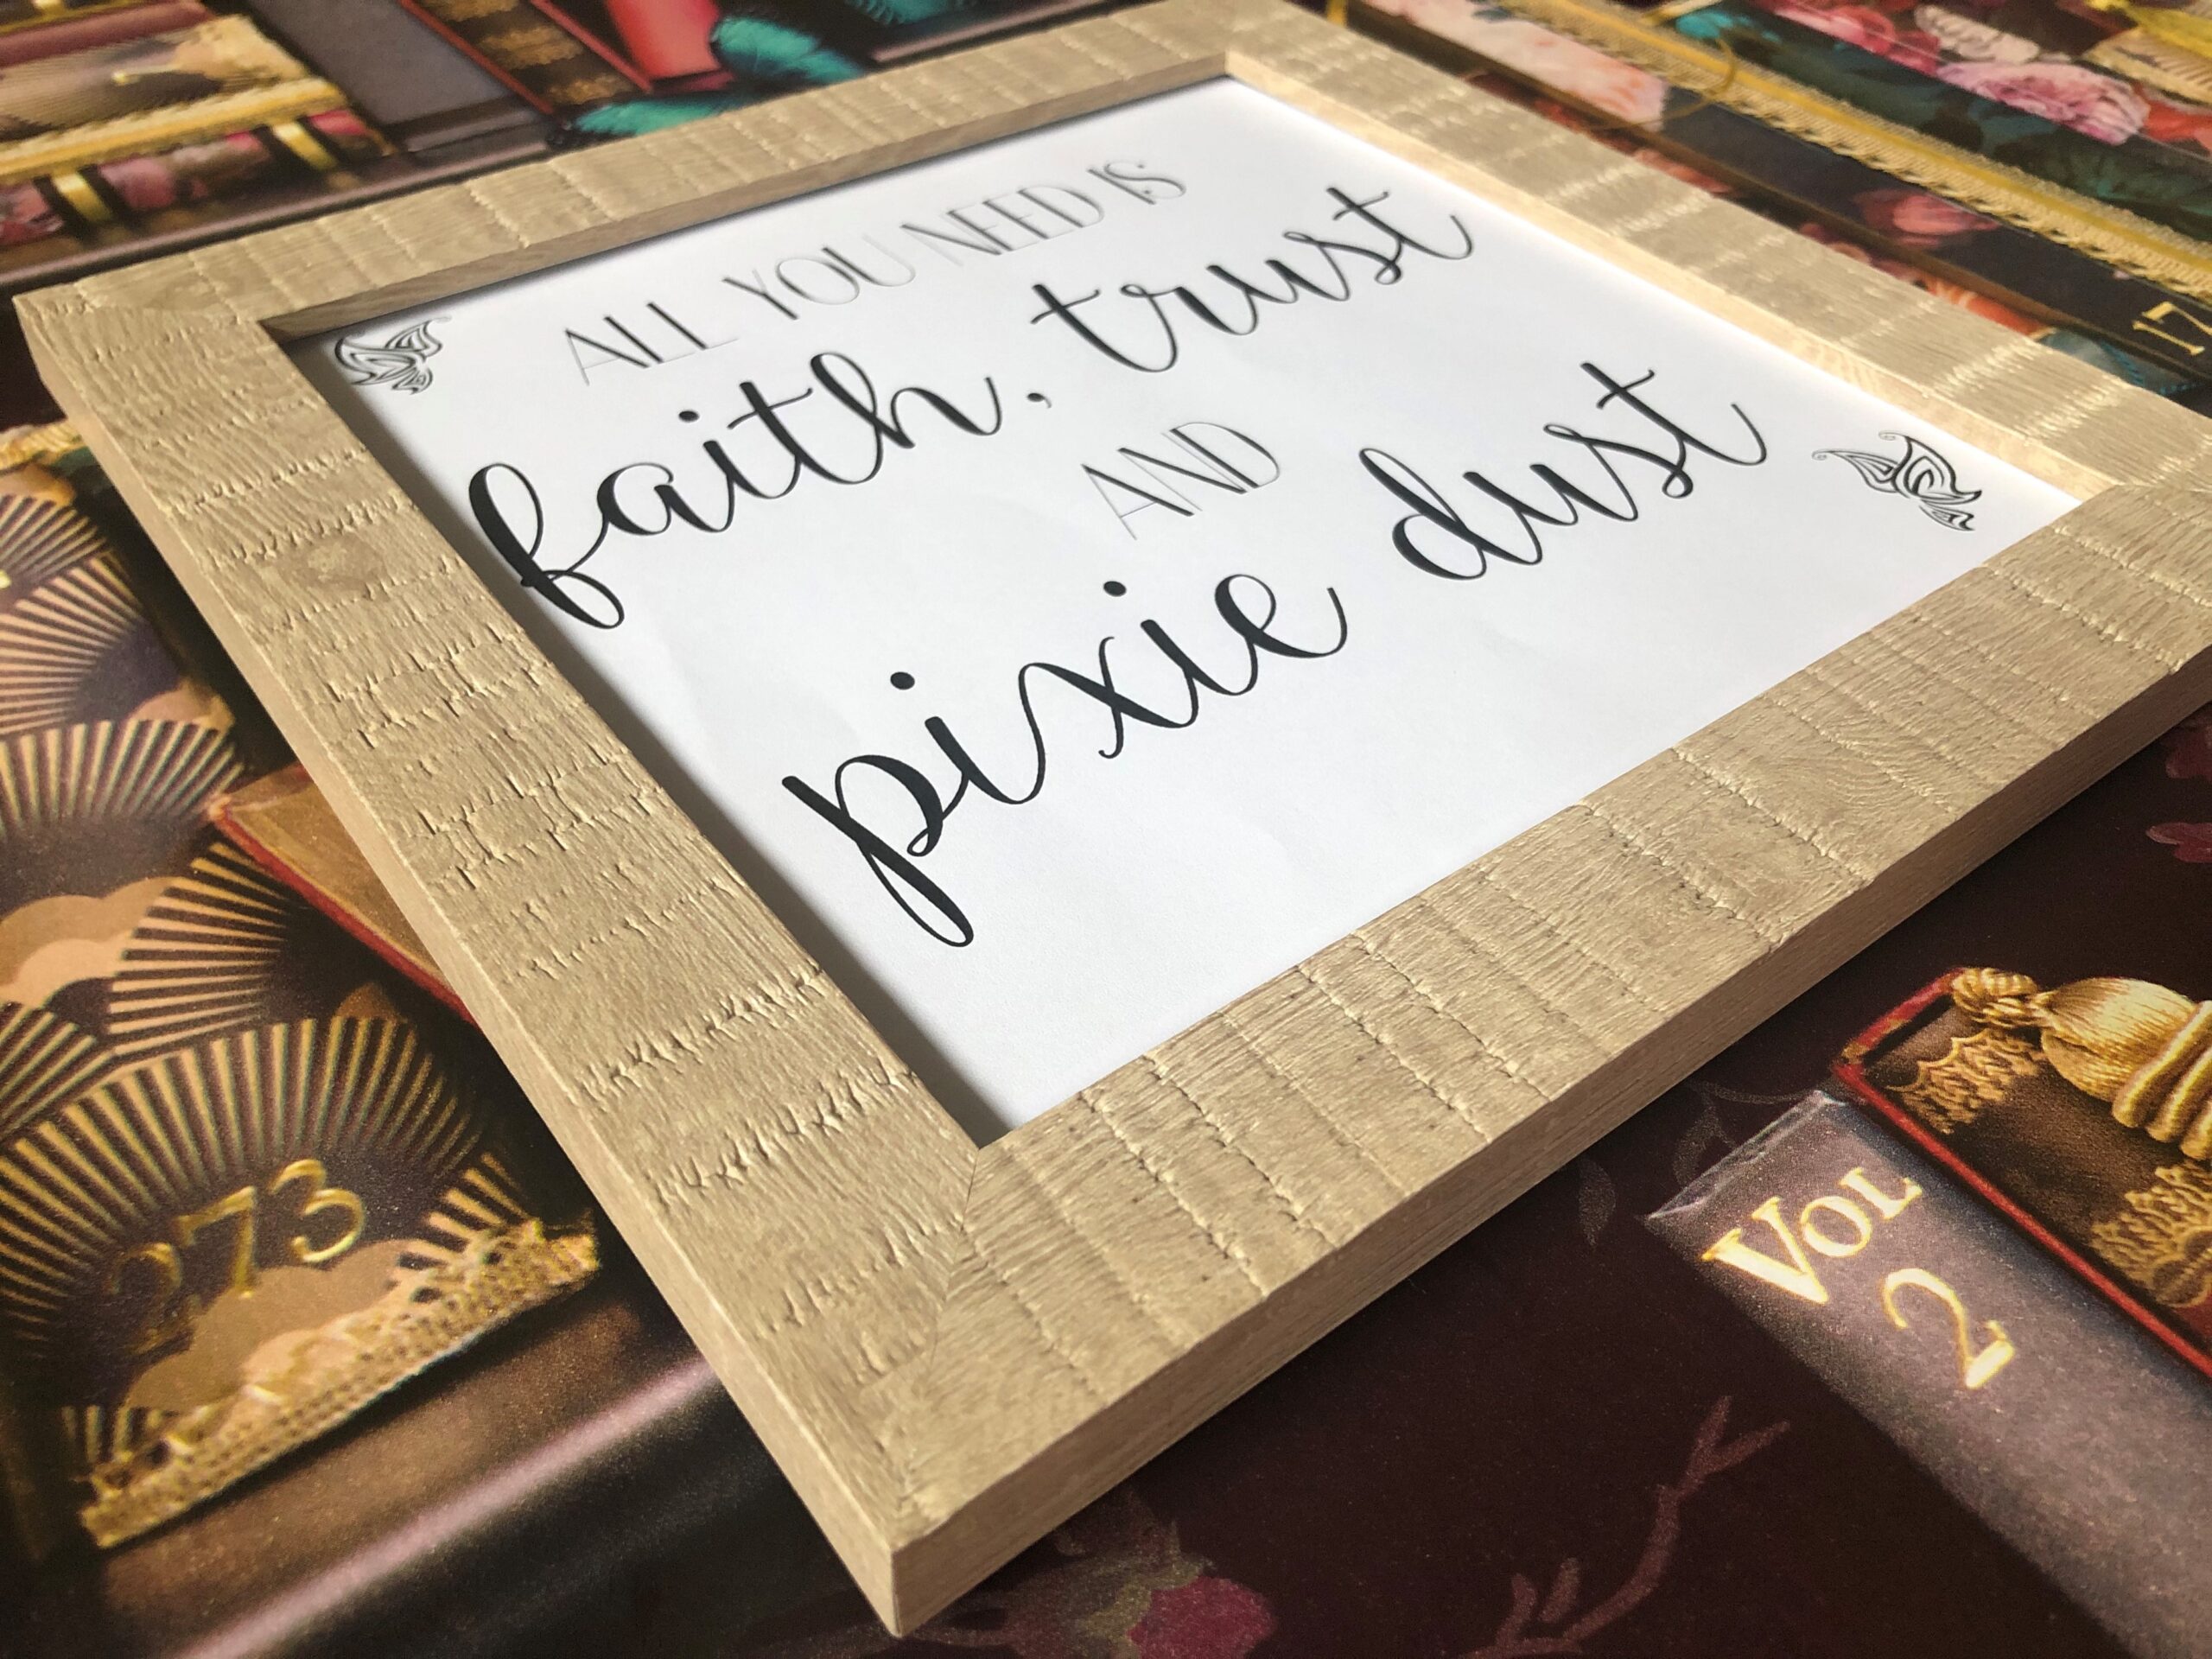 ALL YOU NEED IS
faith, trust
AND
pixie dust
273
VOL
2
17